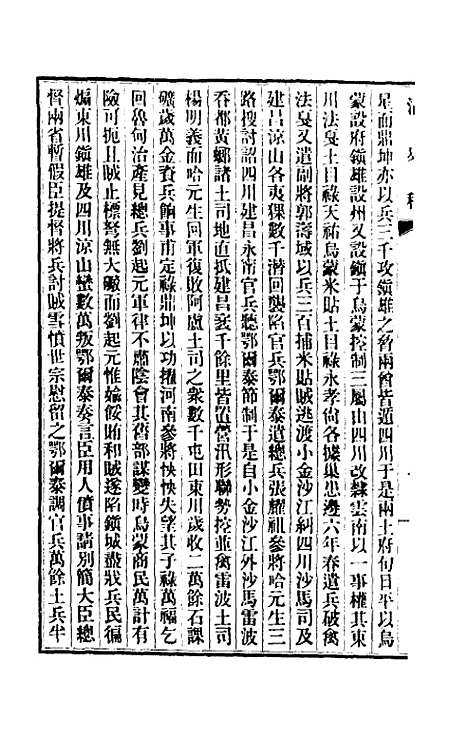 清史稿
星而鼎坤亦以兵三千攻鎮雄之脅兩會皆遁四川于是兩土府旬日平以烏
蒙設府鎮雄設州又設鎮于烏蒙控制三屬由四川改隸雲南以一事權其東
川法戛土目祿天祐烏蒙米貼土目祿永孝尙各據巢患邊六年春遣兵破禽
法戛又遣副將郭濤域以兵三百捕米貼賊逃渡小金沙江糾四川沙馬司及
建昌涼山各夷猓數千潛回襲陷官兵鄂爾泰遣總兵張耀祖參將哈元生三
路搜討詔四川建昌永甯官兵聽鄂爾泰節制于是自小金沙江外沙馬雷波
吞都黃螂諸土司地直抵建昌袤千餘里皆置營汛形聯勢控並禽雷波土司
楊明義而哈元生回軍復敗阿盧土司之衆數千屯田東川歲收二萬餘石課
礦歲萬金資兵餉事甫定祿鼎坤以功擢河南參將怏怏失望其子祿萬福乞
回魯甸治產見總兵劉起元軍律不肅陰會其舊部謀變時烏蒙商民萬計有
險可扼且賊止標弩無大礮而劉起元惟媕婀賄和賊遂陷鎮城盡戕兵民徧
煽東川鎮雄及四川涼山蠻數萬叛鄂爾泰奏言臣用人僨事請別簡大臣總
督兩省暫假臣提督將兵討賊雪憤世宗慰留之鄂爾泰調官兵萬餘土兵半